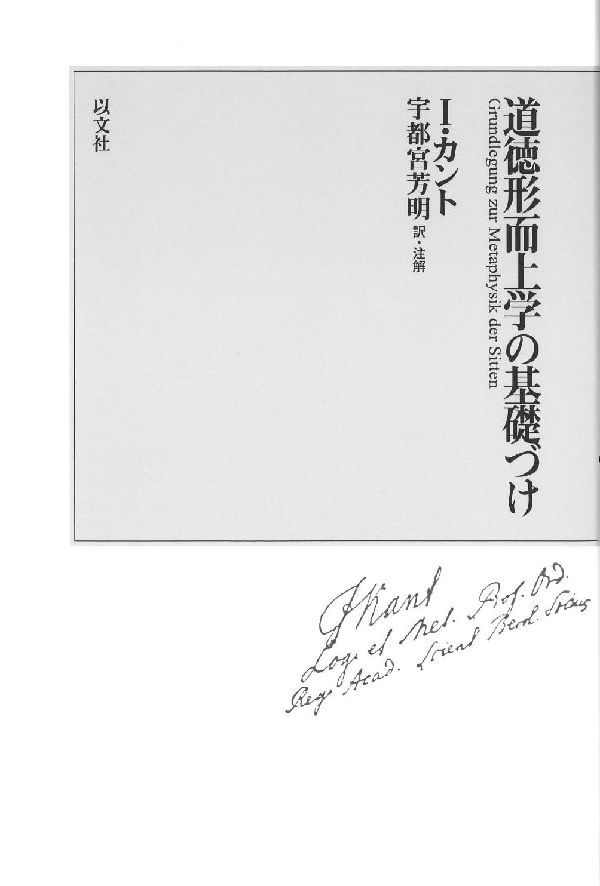 道徳形而上学の基礎づけ
Grundlegung zur Metaphysik der Sitten
I・カント
宇都宮芳明 訳・注解
以文社
IKant
Log. et Met. Prof. Ord.
Reg. Acad. Scient Berol. Socius